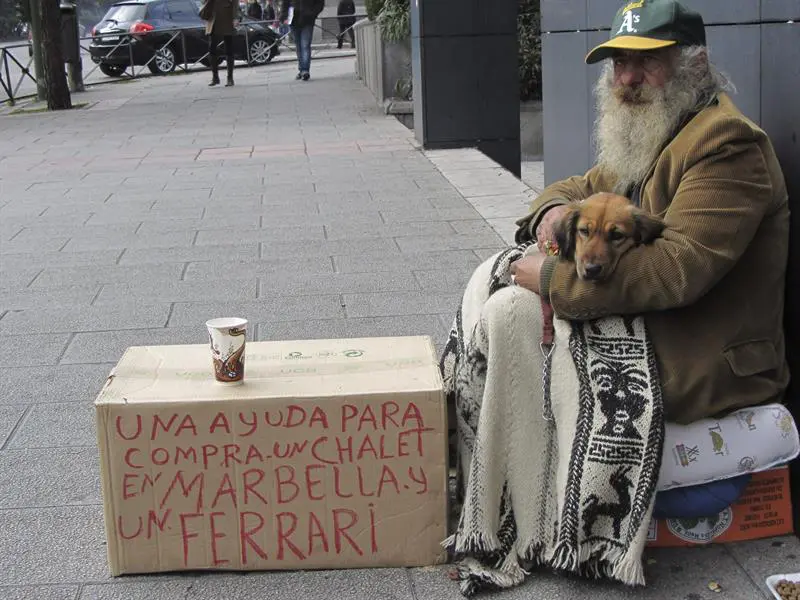 A's
UNA AYUDA PARA
COMPRA.UN CHALET
EN MARBELLA.Y
UN.FERRARI